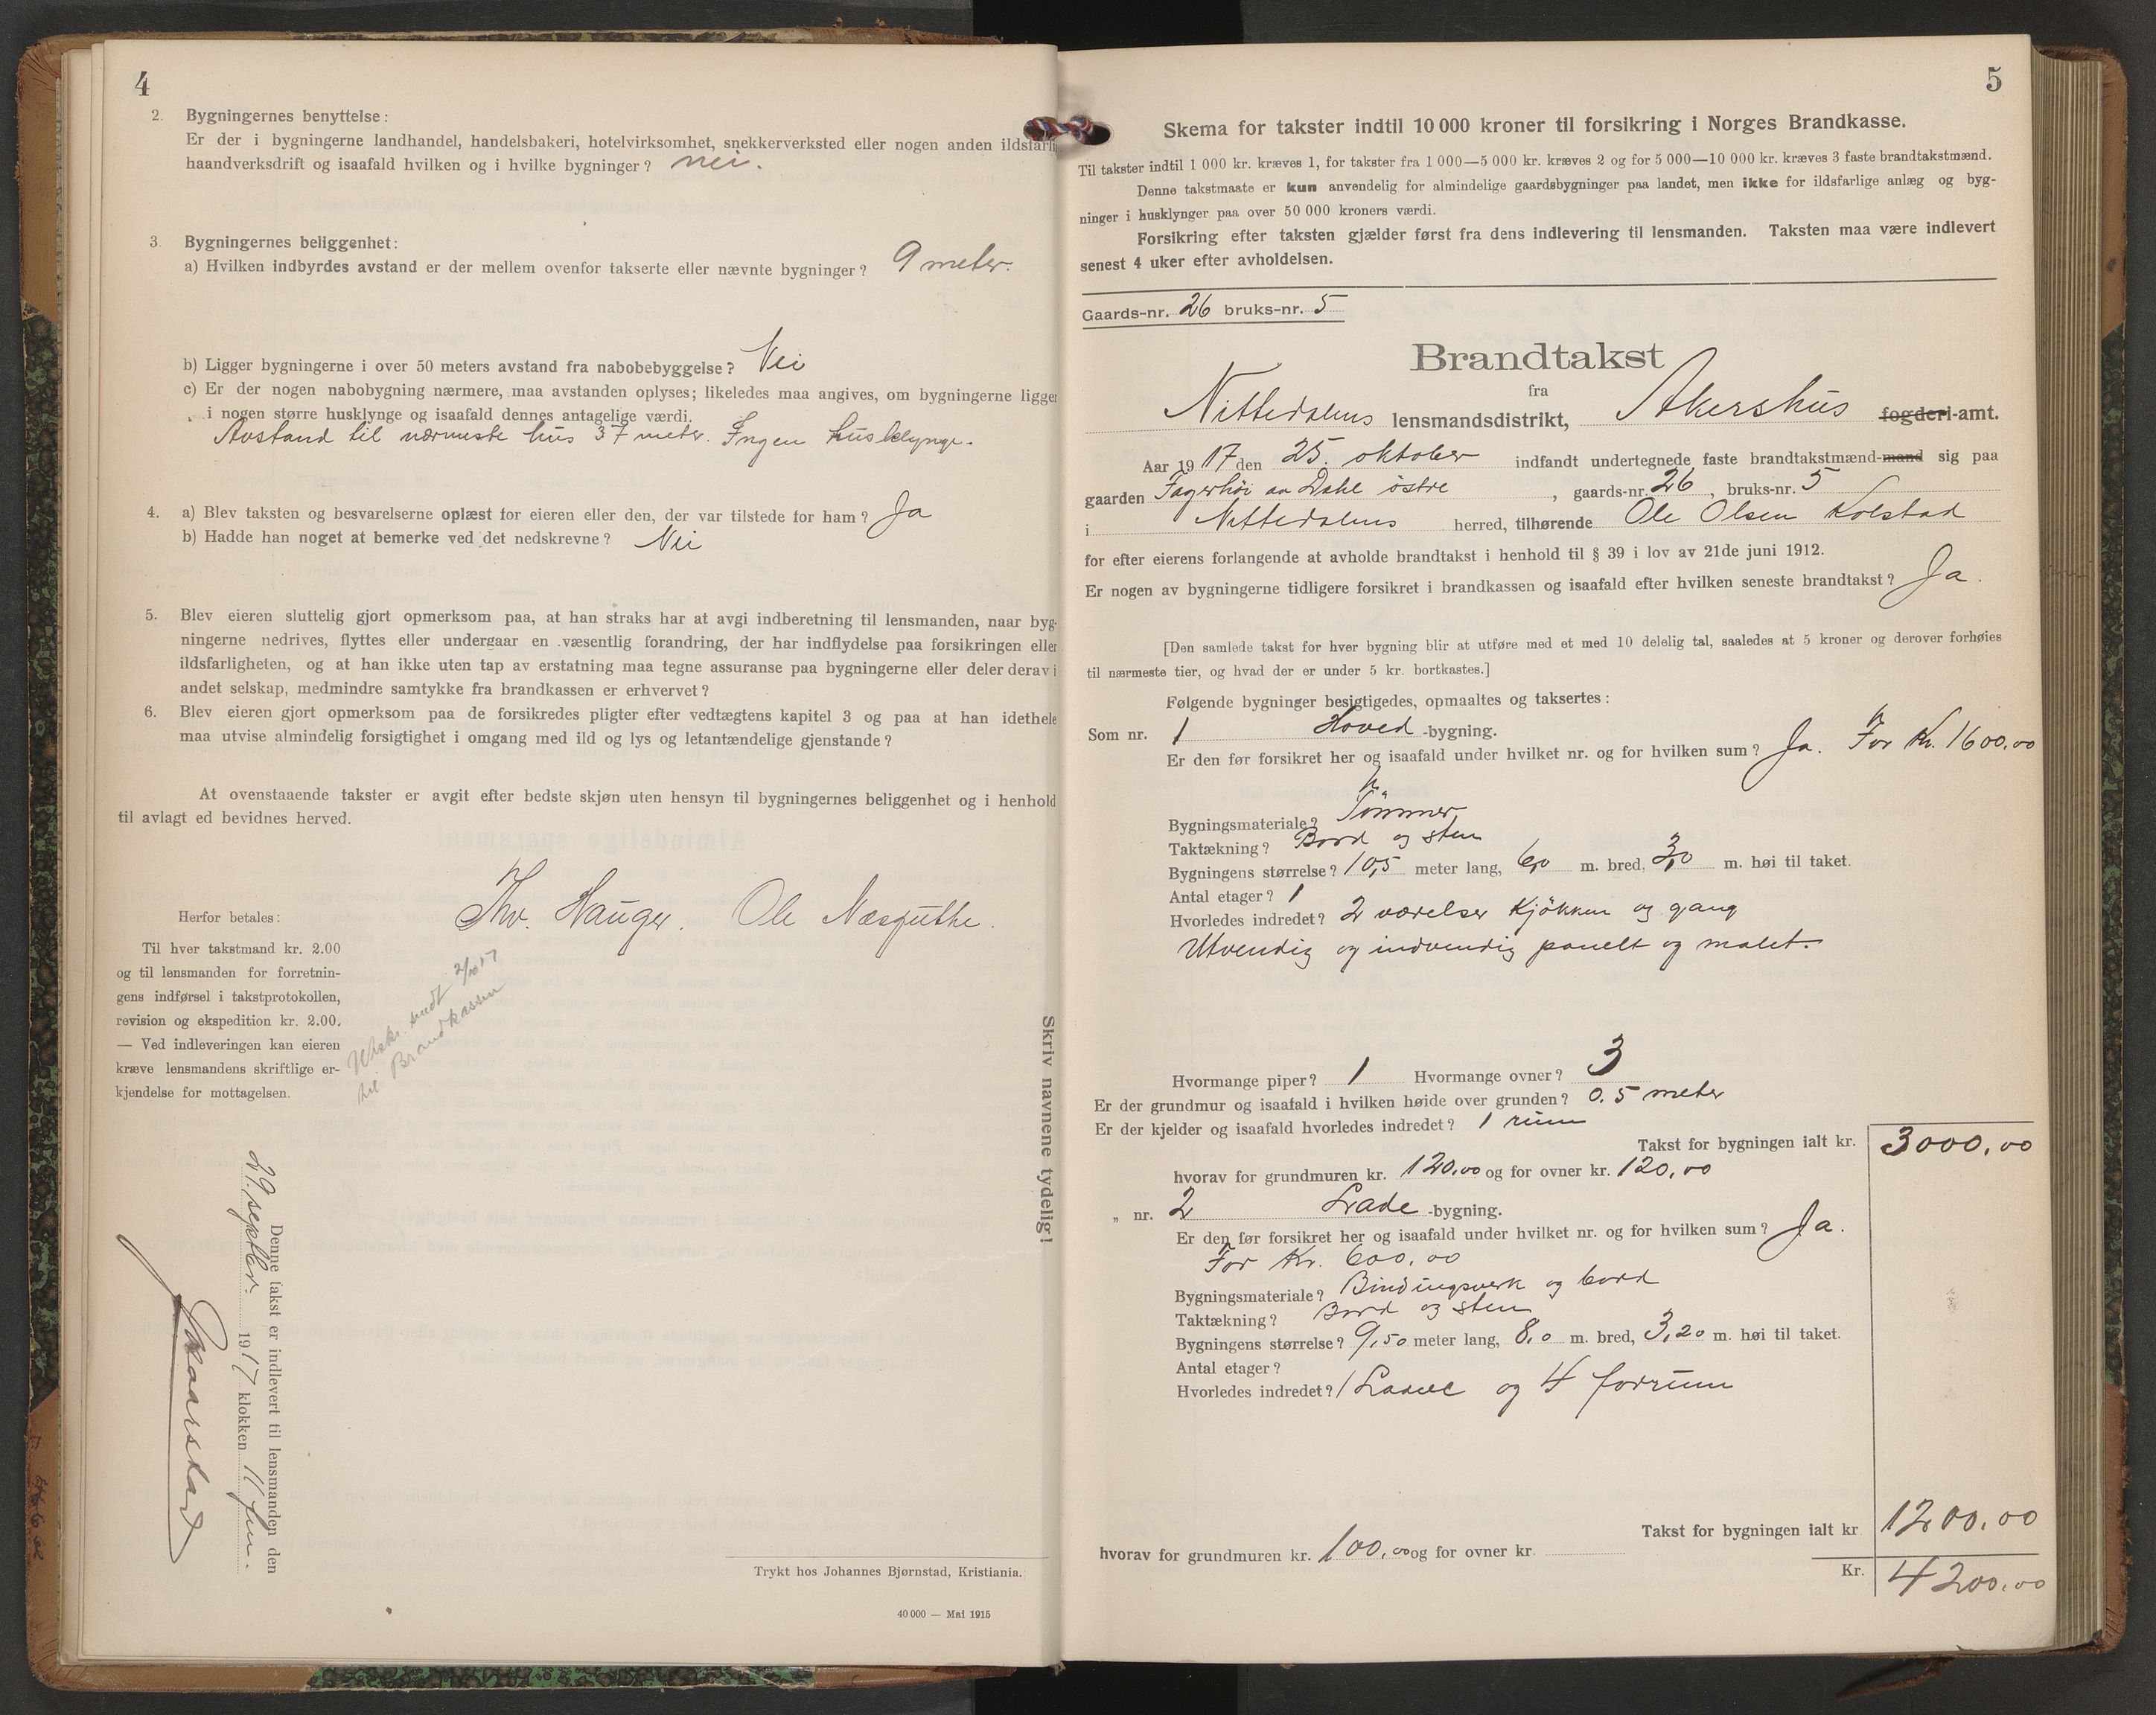 4
2. Bygningernes benyttelse:
Er der i bygningerne landhandel, handelsbakeri, hotelvirksomhet, snekkerverksted eller nogen anden ildsfarli
haandverksdrift og isaafald hvilken og i hvilke bygninger? nei.
3. Bygningernes beliggenhet:
a) Hvilken indbyrdes avstand er der mellem ovenfor takserte eller nævnte bygninger? 9 meter.
b) Ligger bygningerne i over 50 meters avstand fra nabobebyggelse? Nei
c) Er der nogen nabobygning nærmere, maa avstanden oplyses; likeledes maa angives, om bygningerne ligger
i nogen større husklynge og isaafald dennes antagelige værdi.
Avstand til nærmeste hus 37 meter. Ingen husklynge.
4. a) Blev taksten og besvarelserne oplæst for eieren eller den, der var tilstede for ham? Ja
b) Hadde han noget at bemerke ved det nedskrevne? Nei
5. Blev eieren sluttelig gjort opmerksom paa, at han straks har at avgi indberetning til lensmanden, naar byg-
ningerne nedrives, flyttes eller undergaar en væsentlig forandring, der har indflydelse paa forsikringen eller
ildsfarligheten, og at han ikke uten tap av erstatning maa tegne assuranse paa bygningerne eller deler derav i
andet selskap, medmindre samtykke fra brandkassen er erhvervet?
6. Blev eieren gjort opmerksom paa de forsikredes pligter efter vedtægtens kapitel 3 og paa at han idethele
maa utvise almindelig forsigtighet i omgang med ild og lys og letantændelige gjenstande?
At ovenstaaende takster er avgit efter bedste skjøn uten hensyn til bygningernes beliggenhet og i henhold
til avlagt ed bevidnes herved.
Thv. Hauger. Ole Næsguthe.
Herfor betales:
Til hver takstmand kr. 2.00
og til lensmanden for forretnin-
gens indførsel i takstprotokollen,
revision og ekspedition kr. 2.00.
— Ved indleveringen kan eieren
kræve lensmandens skriftlige er-
kjendelse for mottagelsen.
Utskr. sendt 2/10 17
til Brandkassen
Skriv navnene tydelig!
Denne takst er indlevert til lensmanden den
29. septbr. 1917 klokken 11 fm.
Trykt hos Johannes Bjørnstad, Kristiania.
40 000 — Mai 1915
5
Skema for takster indtil 10 000 kroner til forsikring i Norges Brandkasse.
Til takster indtil 1 000 kr. kræves 1, for takster fra 1 000—5 000 kr. kræves 2 og for 5 000—10 000 kr. kræves 3 faste brandtakstmænd.
Denne takstmaate er kun anvendelig for almindelige gaardsbygninger paa landet, men ikke for ildsfarlige anlæg og byg-
ninger i husklynger paa over 50 000 kroners værdi.
Forsikring efter taksten gjælder først fra dens indlevering til lensmanden. Taksten maa være indlevert
senest 4 uker efter avholdelsen.
Gaards-nr. 26 bruks-nr. 5
Brandtakst
fra
Nittedalens lensmandsdistrikt, Akershus fogderi-amt.
Aar 1917 den 25. oktober indfandt undertegnede faste brandtakstmænd-mand sig paa
gaarden Fagerhöi av Dahl östre, gaards-nr. 26, bruks-nr. 5
i Nittedalens herred, tilhørende Ole Olsen Kolstad
for efter eierens forlangende at avholde brandtakst i henhold til § 39 i lov av 21de juni 1912.
Er nogen av bygningerne tidligere forsikret i brandkassen og isaafald efter hvilken seneste brandtakst? Ja.
[Den samlede takst for hver bygning blir at utføre med et med 10 delelig tal, saaledes at 5 kroner og derover forhøies
til nærmeste tier, og hvad der er under 5 kr. bortkastes.]
Følgende bygninger besigtigedes, opmaaltes og taksertes:
Som nr. 1 Hoved-bygning.
Er den før forsikret her og isaafald under hvilket nr. og for hvilken sum? Ja. For Kr. 1600,00
Bygningsmateriale? Tömmer
Taktækning? Bord og sten
Bygningens størrelse? 10,5 meter lang, 6,0 m. bred, 3,0 m. høi til taket.
Antal etager? 1
Hvorledes indredet? 2 værelser Kjökken og gang
Utvendig og indvendig panelt og malet.
Hvormange piper? 1 Hvormange ovner? 3
Er der grundmur og isaafald i hvilken høide over grunden? 0.5 meter
Er der kjelder og isaafald hvorledes indredet? 1 rum
Takst for bygningen ialt kr. 3000,00
hvorav for grundmuren kr. 120,00 og for ovner kr. 120,00
„ nr. 2 Lade-bygning.
Er den før forsikret her og isaafald under hvilket nr. og for hvilken sum? Ja.
For Kr. 600,00
Bygningsmateriale? Bindingsverk og bord
Taktækning? Bord og sten
Bygningens størrelse? 9,50 meter lang, 8,0 m. bred, 3,20 m. høi til taket.
Antal etager?
Hvorledes indredet? 1 Laave og 4 forrum
Takst for bygningen ialt kr 1200,00
hvorav for grundmuren kr. 100,00 og for ovner kr.
Kr. 4200,00